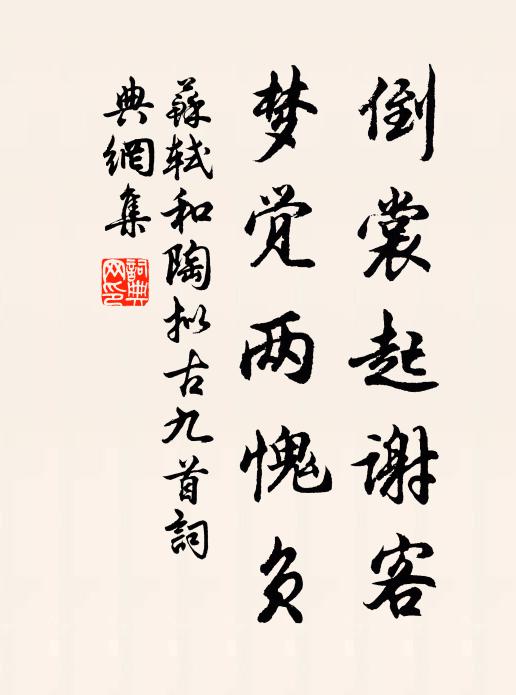 倒裳起谢客
梦觉两愧负
蘇軾和陶拟古九首詞
典網集
詞典网印